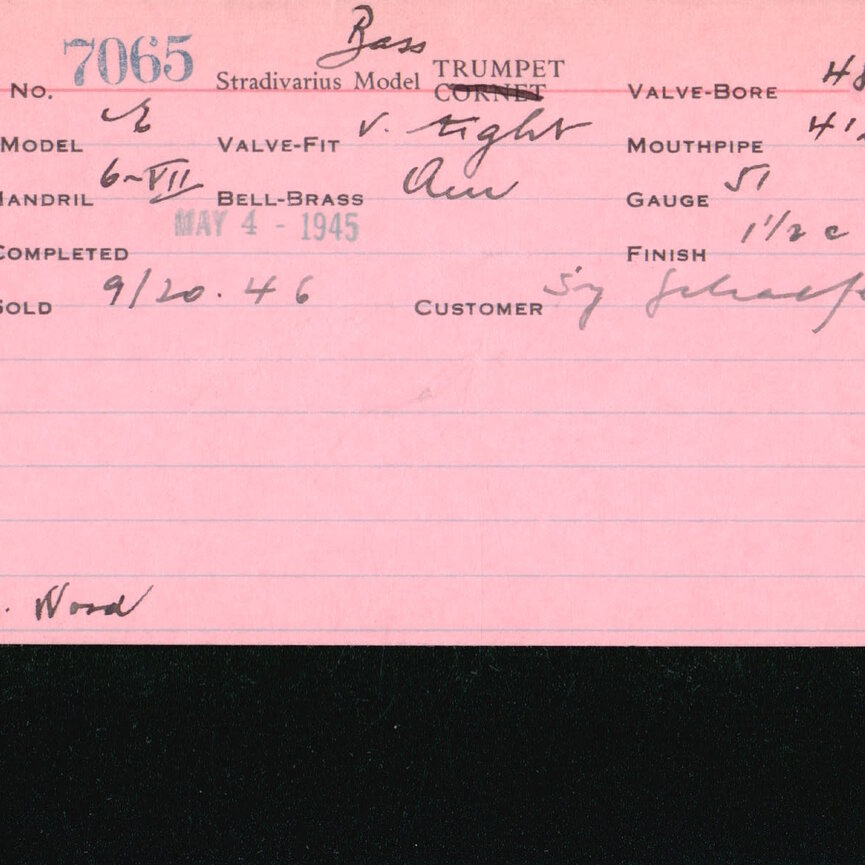 Bass
No. 7065 Stradivarius Model TRUMPET CORNET VALVE-BORE 48
MODEL E VALVE-FIT V. tight MOUTHPIPE 41
MANDRIL 6-VII BELL-BRASS Am GAUGE 51
COMPLETED MAY 4 - 1945 FINISH 1 1/2 c
SOLD 9/20.46 CUSTOMER Sy
Nord